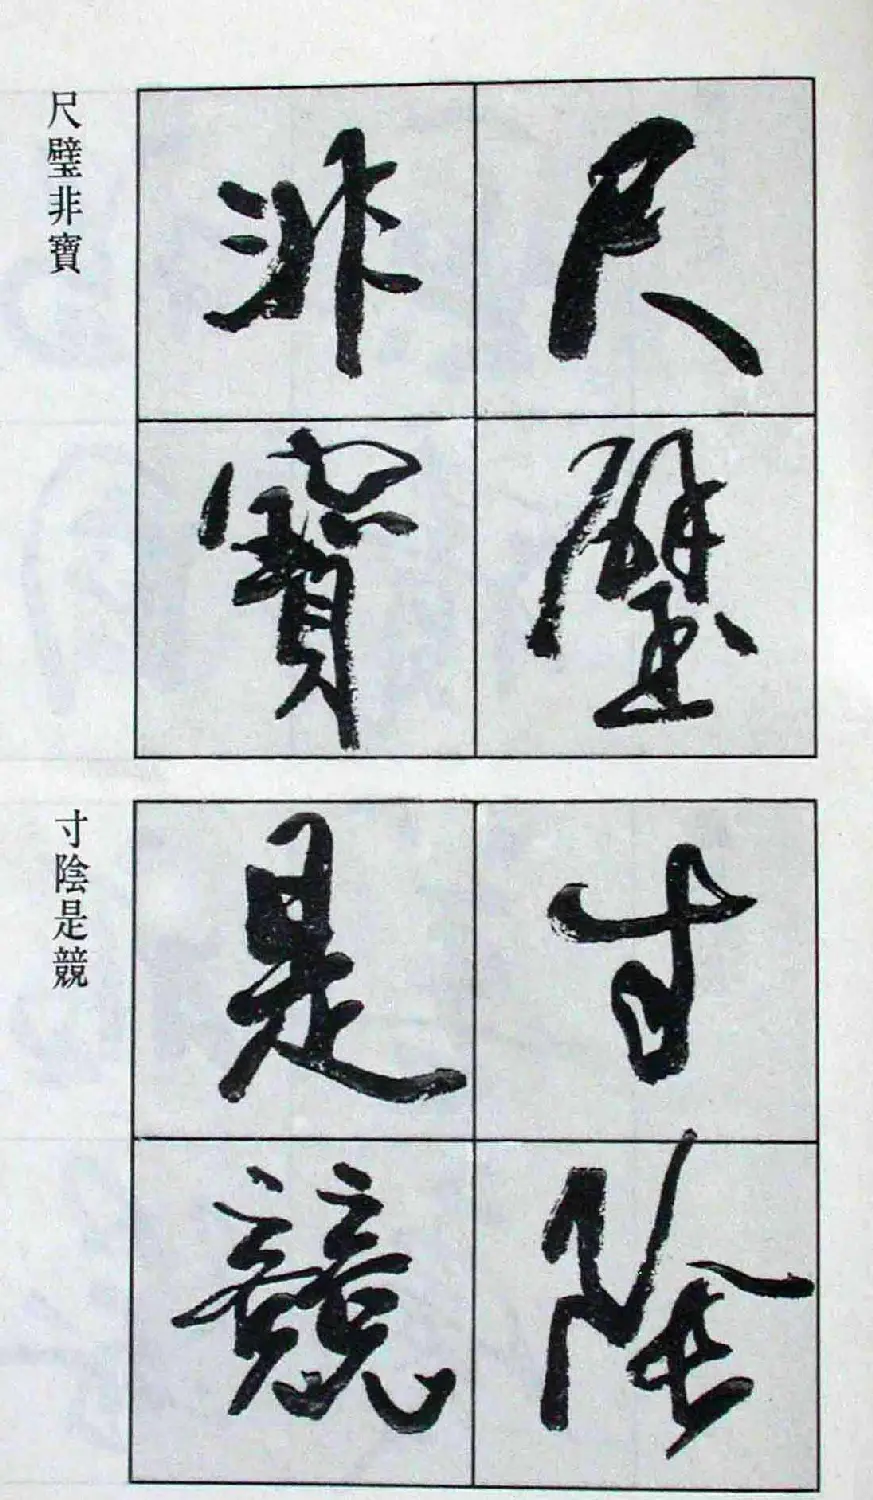 尺璧
非寶
尺璧非寶
寸陰
是競
寸陰是競